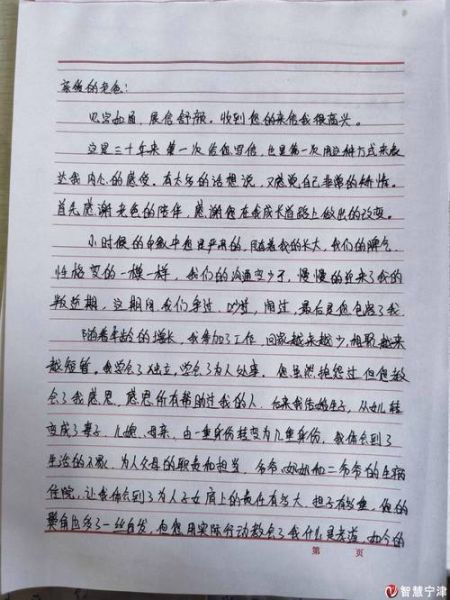 亲爱的老爸:
见字如面,展信舒颜。收到您的来信我很高兴。
这是三十年来第一次给您写信,也是第一次用这种方式来表
达我内心的感受。有太多的话想说,又感觉自己
首先感谢老爸的陪伴,感谢您在我成长道路上做出的改变。
小时候的印象中您是严肃的,随着我的长大,我们的脾气、
性格变的一模一样,我们的沟通变少了,慢慢的迎来了我的
叛逆期,这期间我们争过、吵过、闹过,最后是您包容了我。
随着年龄的增长,我参加了工作,回家越来越少,相聚越来
越短暂。我学会了独立,学会了为人处事。您虽然抱怨过但也教
会了我感恩,感恩所有帮助过我的人。后来我结婚生子,从女儿转
变成了妻子、儿媳、母亲,由一重身份转变为几重身份,我体会到了
生活的不易,为人父母的职责和担当。爷爷、奶奶和二爷爷的生病
住院,让我体会到了为人子女肩上的责任有多大,担子有多重,您的
鬓角边多了一丝白发,但您用实际行动教会了我什么是孝道。如今的
第 页
智慧宁津